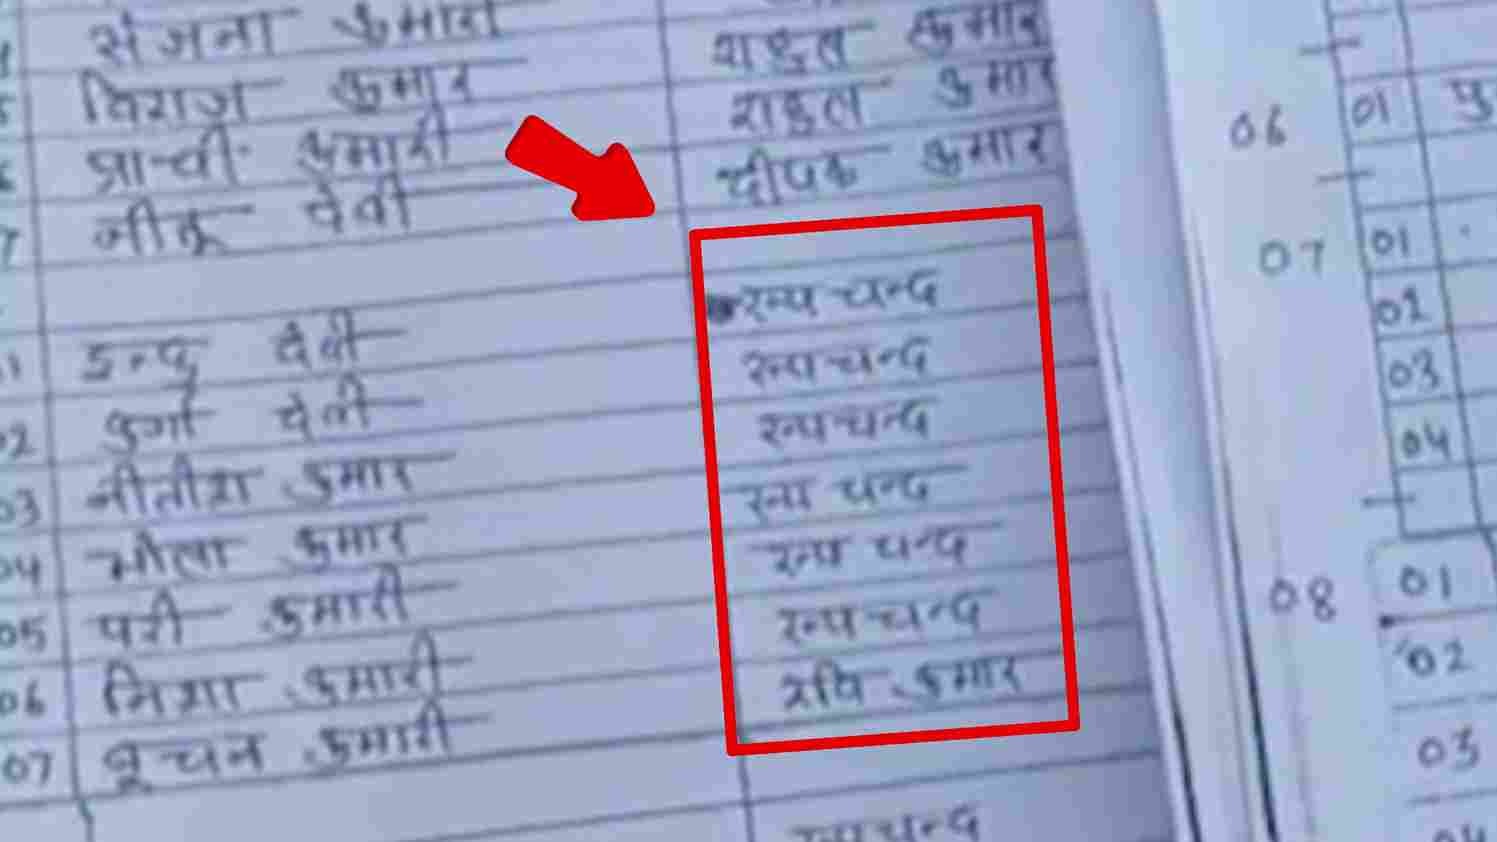 संजना कुमारी राहुल कुमार
विराज कुमार राहुल कुमार
प्राची कुमारी दीपक कुमार
नीतू देवी
रूपचन्द
01 इन्दु देवी रूपचन्द
02 दुर्गा देवी रूपचन्द
03 नीतीश कुमार रूप चन्द
04 भोला कुमार रूप चन्द
05 परी कुमारी रूपचन्द
06 निशा कुमारी रवि कुमार
07 कुमारी
रूपचन्द
06 01
07 01
02
03
04
08 01
02
03
04